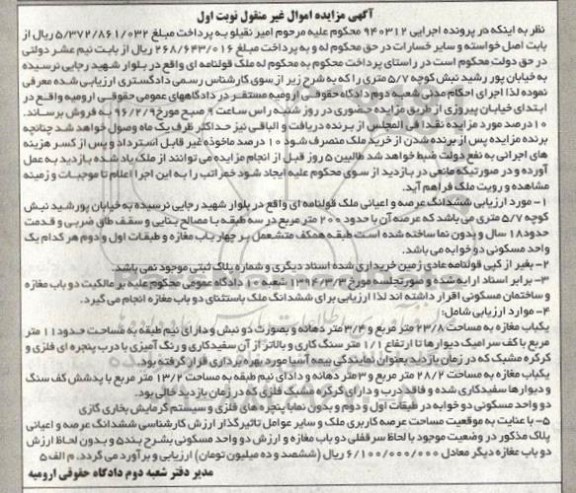 آگهی مزایده اموال غیر منقول نوبت اول
نظر به اینکه در پرونده اجرایی ۹۴۰۳۱۲ محکوم علیه مرحوم امیر نقیلو به پرداخت مبلغ ۵/۳۷۲/۸۶۱/۰۳۲ ریال از
بابت اصل خواسته و سایر خسارات در حق محکوم له و به پرداخت مبلغ ۲۶۸/۶۴۳/۰۱۶ ریال از بابت نیم عشر دولتی
در حق دولت محکوم است در راستای پرداخت محکوم به محکوم له ملک قولنامه ای واقع در بلوار شهید رجایی نرسیده
به خیابان پور رشید نبش کوچه ۵/۷ متری را که به شرح زیر از سوی کارشناس رسمی دادگستری ارزیابی شده معرفی
نموده لذا اجرای احکام مدنی شعبه دوم دادگاه حقوقی ارومیه مستقر در دادگاههای عمومی حقوقی ارومیه واقع در
ابتدای خیابان پیروزی از طریق مزایده حضوری در روز شنبه راس ساعت ۹ صبح مورخ ۹۶/۲/۹ به فروش برساند.
۱۰ درصد مورد مزایده نقدا فی المجلس از برنده دریافت و الباقی نیز حداکثر ظرف یک ماه وصول خواهد شد چنانچه
برنده مزایده پس از برنده شدن از خرید ملک منصرف شود ۱۰ درصد ماخوذه غیر قابل استرداد و پس از کسر هزینه
های اجرائی به نفع دولت ضبط خواهد شد طالبین ۵ روز قبل از انجام مزایده می توانند از ملک یاد شده بازدید به عمل
آورده و در صورتیکه مانعی در بازدید از سوی محکوم علیه ایجاد شود خمراتب را به این اجرا اعلام تا موجبات و زمینه
مشاهده و رویت ملک فراهم آید.
۱- مورد ارزیابی ششدانگ عرصه و اعیانی ملک قولنامه ای واقع در بلوار شهید رجایی نرسیده به خیابان پور شید نبش
کوچه ۵/۷ متری می باشد که عرصه آن با حدود ۲۰۰ متر مربع در سه طبقه با مصالح بنایی و سقف طاق ضربی و قدمت
حدود ۱۸ سال و بدون نما ساخته شده است طبقه همکف متشعمل بر چهار باب مغازه و طبقات اول و دوم هر کدام یک
واحد مسکونی دو خوابه می باشد.
۲- بغیر از کپی قولنامه عادی زمین خریداری شده اسناد دیگری و شماره پلاک ثبتی موجود نمی باشد.
۳- برابر اسناد ارایه شده و صورتجلسه مورخ ۱۳۹۴/۳/۳ شعبه ۱۰ دادگاه عمومی محکوم علیه بر مالکیت دو باب مغازه
و ساختمان مسکونی اقرار داشته اند لذا ارزیابی برای ششدانگ ملک باستثنای دو باب مغازه انجام می گیرد.
۴- موارد ارزیابی شامل:
یکباب مغازه به مساحت ۲۳/۸ متر مربع و ۳/۴ متر دهانه و بصورت دو نبش و دارای نیم طبقه به مساحت حدود ۱۱ متر
مربع با کف سرامیک دیوارها تا ارتفاع ۱/۱ متر سنگ کاری و بالاتر از آن سفیدکاری و رنگ آمیزی با درب پنجره ای فلزی و
کرکره مشبک که در زمان بازدید بعنوان نمایندگی بیمه آسیا مورد بهره برداری قرار گرفته بود.
یکباب مغازه به مساحت ۲۸/۲ متر مربع و ۳ متر دهانه و دادای نیم طبقه به مساحت ۱۳/۲ متر مربع با پدشش کف سنگ
و دیوارها سفیدکاری شده و فاقد درب و دارای کرکره مشبک فلزی که در زمان بازدید خالی بود.
دو واحد مسکونی دو خوابه در طبقات اول و دوم و بدون نمابا پنجره های فلزی و سیستم گرمایش بخاری گازی
۵- با عنایت به موقعیت مساحت عرصه کاربری ملک و سایر عوامل تاثیرگذار ارزش کارشناسی ششدانگ عرصه و اعیانی
پلاک مذکور در وضعیت موجود با لحاظ سرقفلی دو باب مغازه و ارزش دو واحد مسکونی بشرح بند ۵ و بدون لحاظ ارزش
دو باب مغازه دیگر معادل ۶/۱۰۰/۰۰۰/۰۰۰ ریال (ششصد و ده میلیون تومان) ارزیابی و برآورد می گردد. م الف ۵
مدیر دفتر شعبه دوم دادگاه حقوقی ارومیه